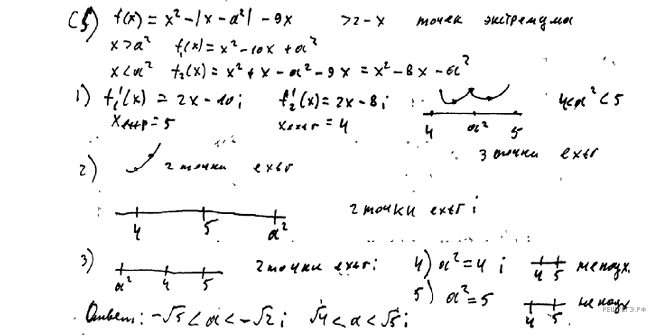 C5) f(x) = x² - |x - a²| - 9x >2-х точек экстремума
x > a² f₁(x) = x² - 10x + a²
x < a² f₂(x) = x² + x - a² - 9x = x² - 8x - a²
1) f₁'(x) = 2x - 10; f₂'(x) = 2x - 8; 4 < a² < 5
xэкстр = 5 xэкстр = 4 4 a² 5
3 точки extr
2) 2 точки extr
2 точки extr;
4 5 a²
3) a² 4 5 2 точки extr; 4) a² = 4; 4 5 не подх.
5) a² = 5 4 5 не подх.
Ответ: -√5 < a < -√2; √4 < a < √5;
РЕШУЕГЭ.РФ